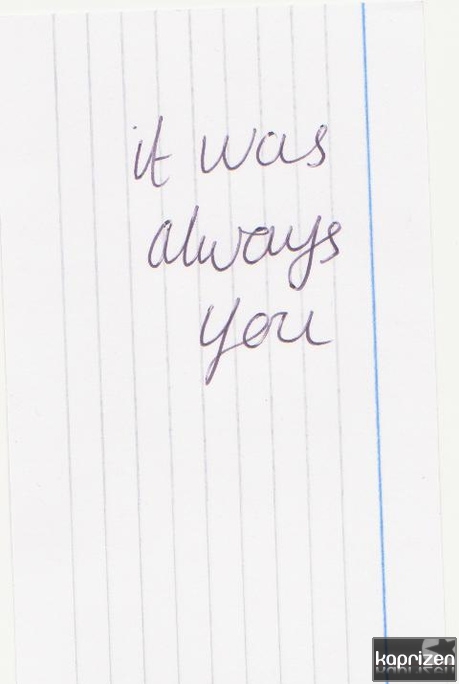 it was
always
you
kaprizen